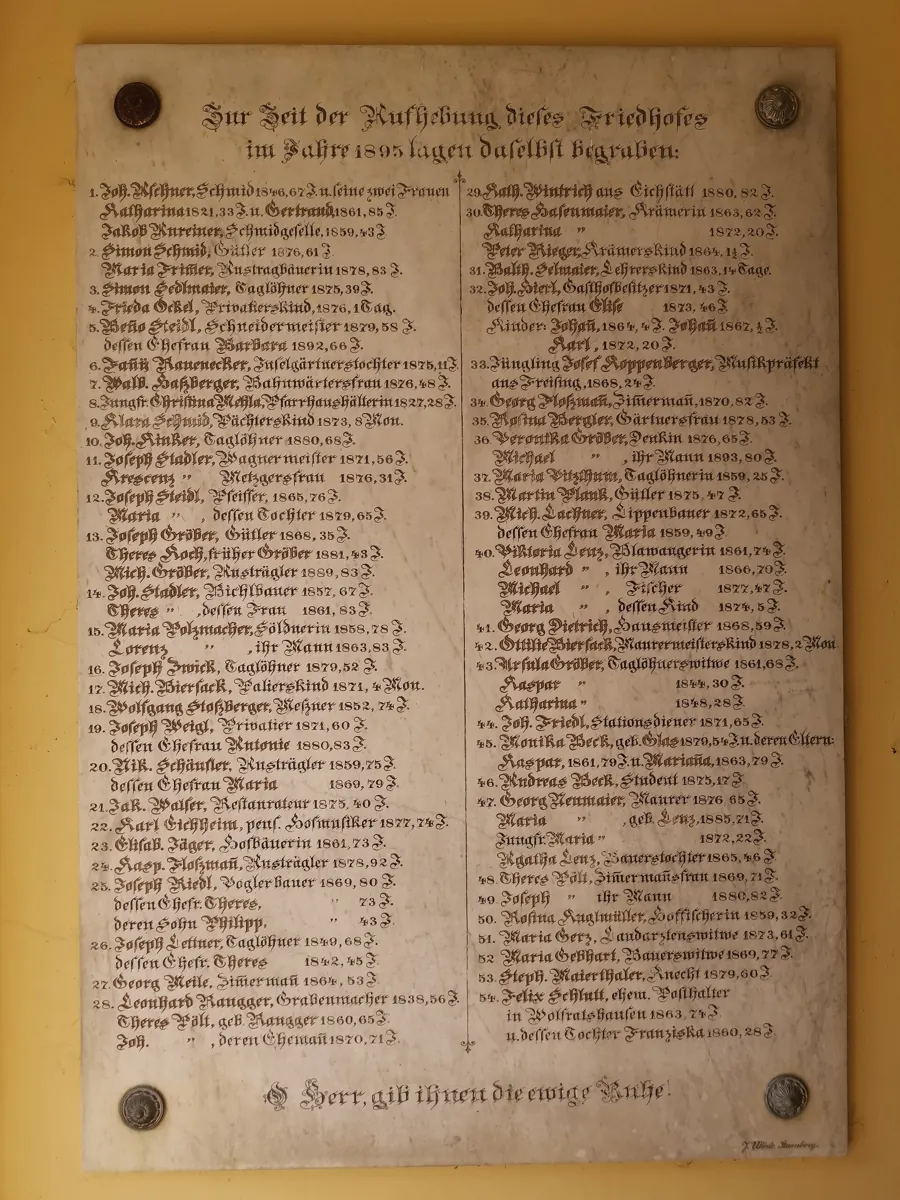 Zur Zeit der Aufhebung dieses Friedhofes
im Jahre 1895 lagen daselbst begraben:
1. Joh. Aschner, Schmid 1846, 67 J. u. seine zwei Frauen
Katharina 1821, 33 J. u. Gertraud 1861, 85 J.
Jakob Anreiner, Schmidgeselle, 1859, 43 J
2. Simon Schmid, Gütler 1876, 61 J.
Maria Frim̄er, Austragbäuerin 1878, 83 J.
3. Simon Sedlmaier, Taglöhner 1875, 39 J.
4. Frieda Eckel, Privatierskind, 1876, 1 Tag.
5. Beño Steidl, Schneidermeister 1879, 58 J.
dessen Ehefrau Barbara 1892, 66 J.
6. Fanñ Rauenecker, Inselgärtnerstochter 1875, 11 J.
7. Walb. Haßberger, Bahnwärtersfrau 1876, 48 J.
8. Jungfr. Christina Mehla, Pfarrhaushälterin 1827, 28 J.
9. Klara Schmid, Pächterskind 1873, 8 Mon.
10. Joh. Kinker, Taglöhner 1880, 68 J.
11. Joseph Stadler, Wagnermeister 1871, 56 J.
Krescenz " Metzgersfrau 1876, 31 J.
12. Joseph Steidl, Pfeiffer, 1865, 76 J.
Maria " , dessen Tochter 1879, 65 J.
13. Joseph Gröber, Gütler 1868, 35 J.
Theres Koch, früher Gröber 1881, 43 J.
Mich. Gröber, Austrägler 1889, 83 J.
14. Joh. Stadler, Bichlbauer 1857, 67 J.
Theres " , dessen Frau 1861, 83 J.
15. Maria Polzmacher, Söldnerin 1858, 78 J.
Lorenz " , ihr Mann 1863, 83 J.
16. Joseph Zwick, Taglöhner 1879, 52 J.
17. Mich. Biersack, Palierskind 1871, 4 Mon.
18. Wolfgang Stoßberger, Meßner 1852, 74 J.
19. Joseph Weigl, Privatier 1871, 60 J.
dessen Ehefrau Antonie 1880, 83 J.
20. Nik. Schäufler, Austrägler 1859, 75 J.
dessen Ehefrau Maria 1869, 79 J.
21. Jak. Walser, Restaurateur 1875, 40 J.
22. Karl Eichheim, pens. Hofmusiker 1877, 74 J.
23. Elisab. Jäger, Hofbäuerin 1861, 73 J.
24. Kasp. Floßmañ, Austrägler 1878, 92 J.
25. Joseph Riedl, Voglerbauer 1869, 80 J.
dessen Ehefr. Theres, " 73 J.
deren Sohn Philipp, " 43 J.
26. Joseph Lettner, Taglöhner 1849, 68 J.
dessen Ehefr. Theres 1842, 45 J
27. Georg Meile, Zim̄ermañ 1864, 53 J
28. Leonhard Rangger, Grabenmacher 1838, 56 J.
Theres Pölt, geb. Rangger 1860, 65 J.
Joh. " , deren Ehemañ 1870, 71 J.
29. Kath. Wintrich aus Eichstätt 1880, 82 J.
30. Theres Hasenmaier, Krämerin 1863, 62 J.
Katharina " 1872, 20 J.
Peter Rieger, Krämerskind 1864, 1½ J.
31. Balth. Selmaier, Lehrerskind 1863, 14 Tage.
32. Joh. Hierl, Gasthofbesitzer 1871, 43 J.
dessen Ehefrau Elise 1873, 46 J
Kinder: Johañ, 1864, 4 J. Johañ 1867, ½ J.
Karl, 1872, 20 J.
33. Jüngling Josef Koppenberger, Musikpräfekt
aus Freising, 1868, 24 J.
34. Georg Floßmañ, Zim̄ermañ, 1870, 82 J.
35. Rosina Bergler, Gärtnersfrau 1878, 53 J.
36. Veronika Gröber, Denkin 1876, 65 J.
Michael " , ihr Mann 1893, 80 J.
37. Maria Vitzthum, Taglöhnerin 1859, 25 J.
38. Martin Plank, Gütler 1875, 47 J.
39. Mich. Lachner, Lippenbauer 1872, 65 J.
dessen Ehefrau Maria 1859, 49 J
40. Viktoria Lenz, Blawangerin 1861, 74 J.
Leonhard " , ihr Mann 1866, 70 J.
Michael " , Fischer 1877, 47 J.
Maria " , dessen Kind 1874, 5 J.
41. Georg Dietrich, Hausmeister 1868, 59 J.
42. Ottilie Biersack, Maurermeisterskind 1878, 2 Mon
43. Ursula Gröber, Taglöhnerswitwe 1861, 68 J.
Kaspar " 1844, 30 J.
Katharina " 1848, 28 J.
44. Joh. Friedl, Stationsdiener 1871, 65 J.
45. Monika Beck, geb. Glas 1879, 54 J. u. deren Eltern:
Kaspar, 1861, 79 J. u. Mariaña, 1863, 79 J.
46. Andreas Beck, Student 1875, 17 J.
47. Georg Neumaier, Maurer 1876, 65 J.
Maria " , geb. Lenz, 1885, 71 J.
Jungfr. Maria " 1872, 22 J.
Agatha Lenz, Bauerstochter 1865, 46 J
48. Theres Pölt, Zim̄ermañsfrau 1869, 71 J.
49. Joseph " ihr Mann 1880, 82 J.
50. Rosina Anglmüller, Hoffischerin 1859, 32 J.
51. Maria Gerz, Landarztenswitwe 1873, 61 J.
52 Maria Gebhart, Bauerswitwe 1869, 77 J.
53. Steph. Maierthaler, Knecht 1879, 60 J.
54. Felix Schlutt, ehem. Posthalter
in Wolfratshausen 1863, 74 J.
u. dessen Tochter Franziska 1860, 28 J.
O Herr, gib ihnen die ewige Ruhe!